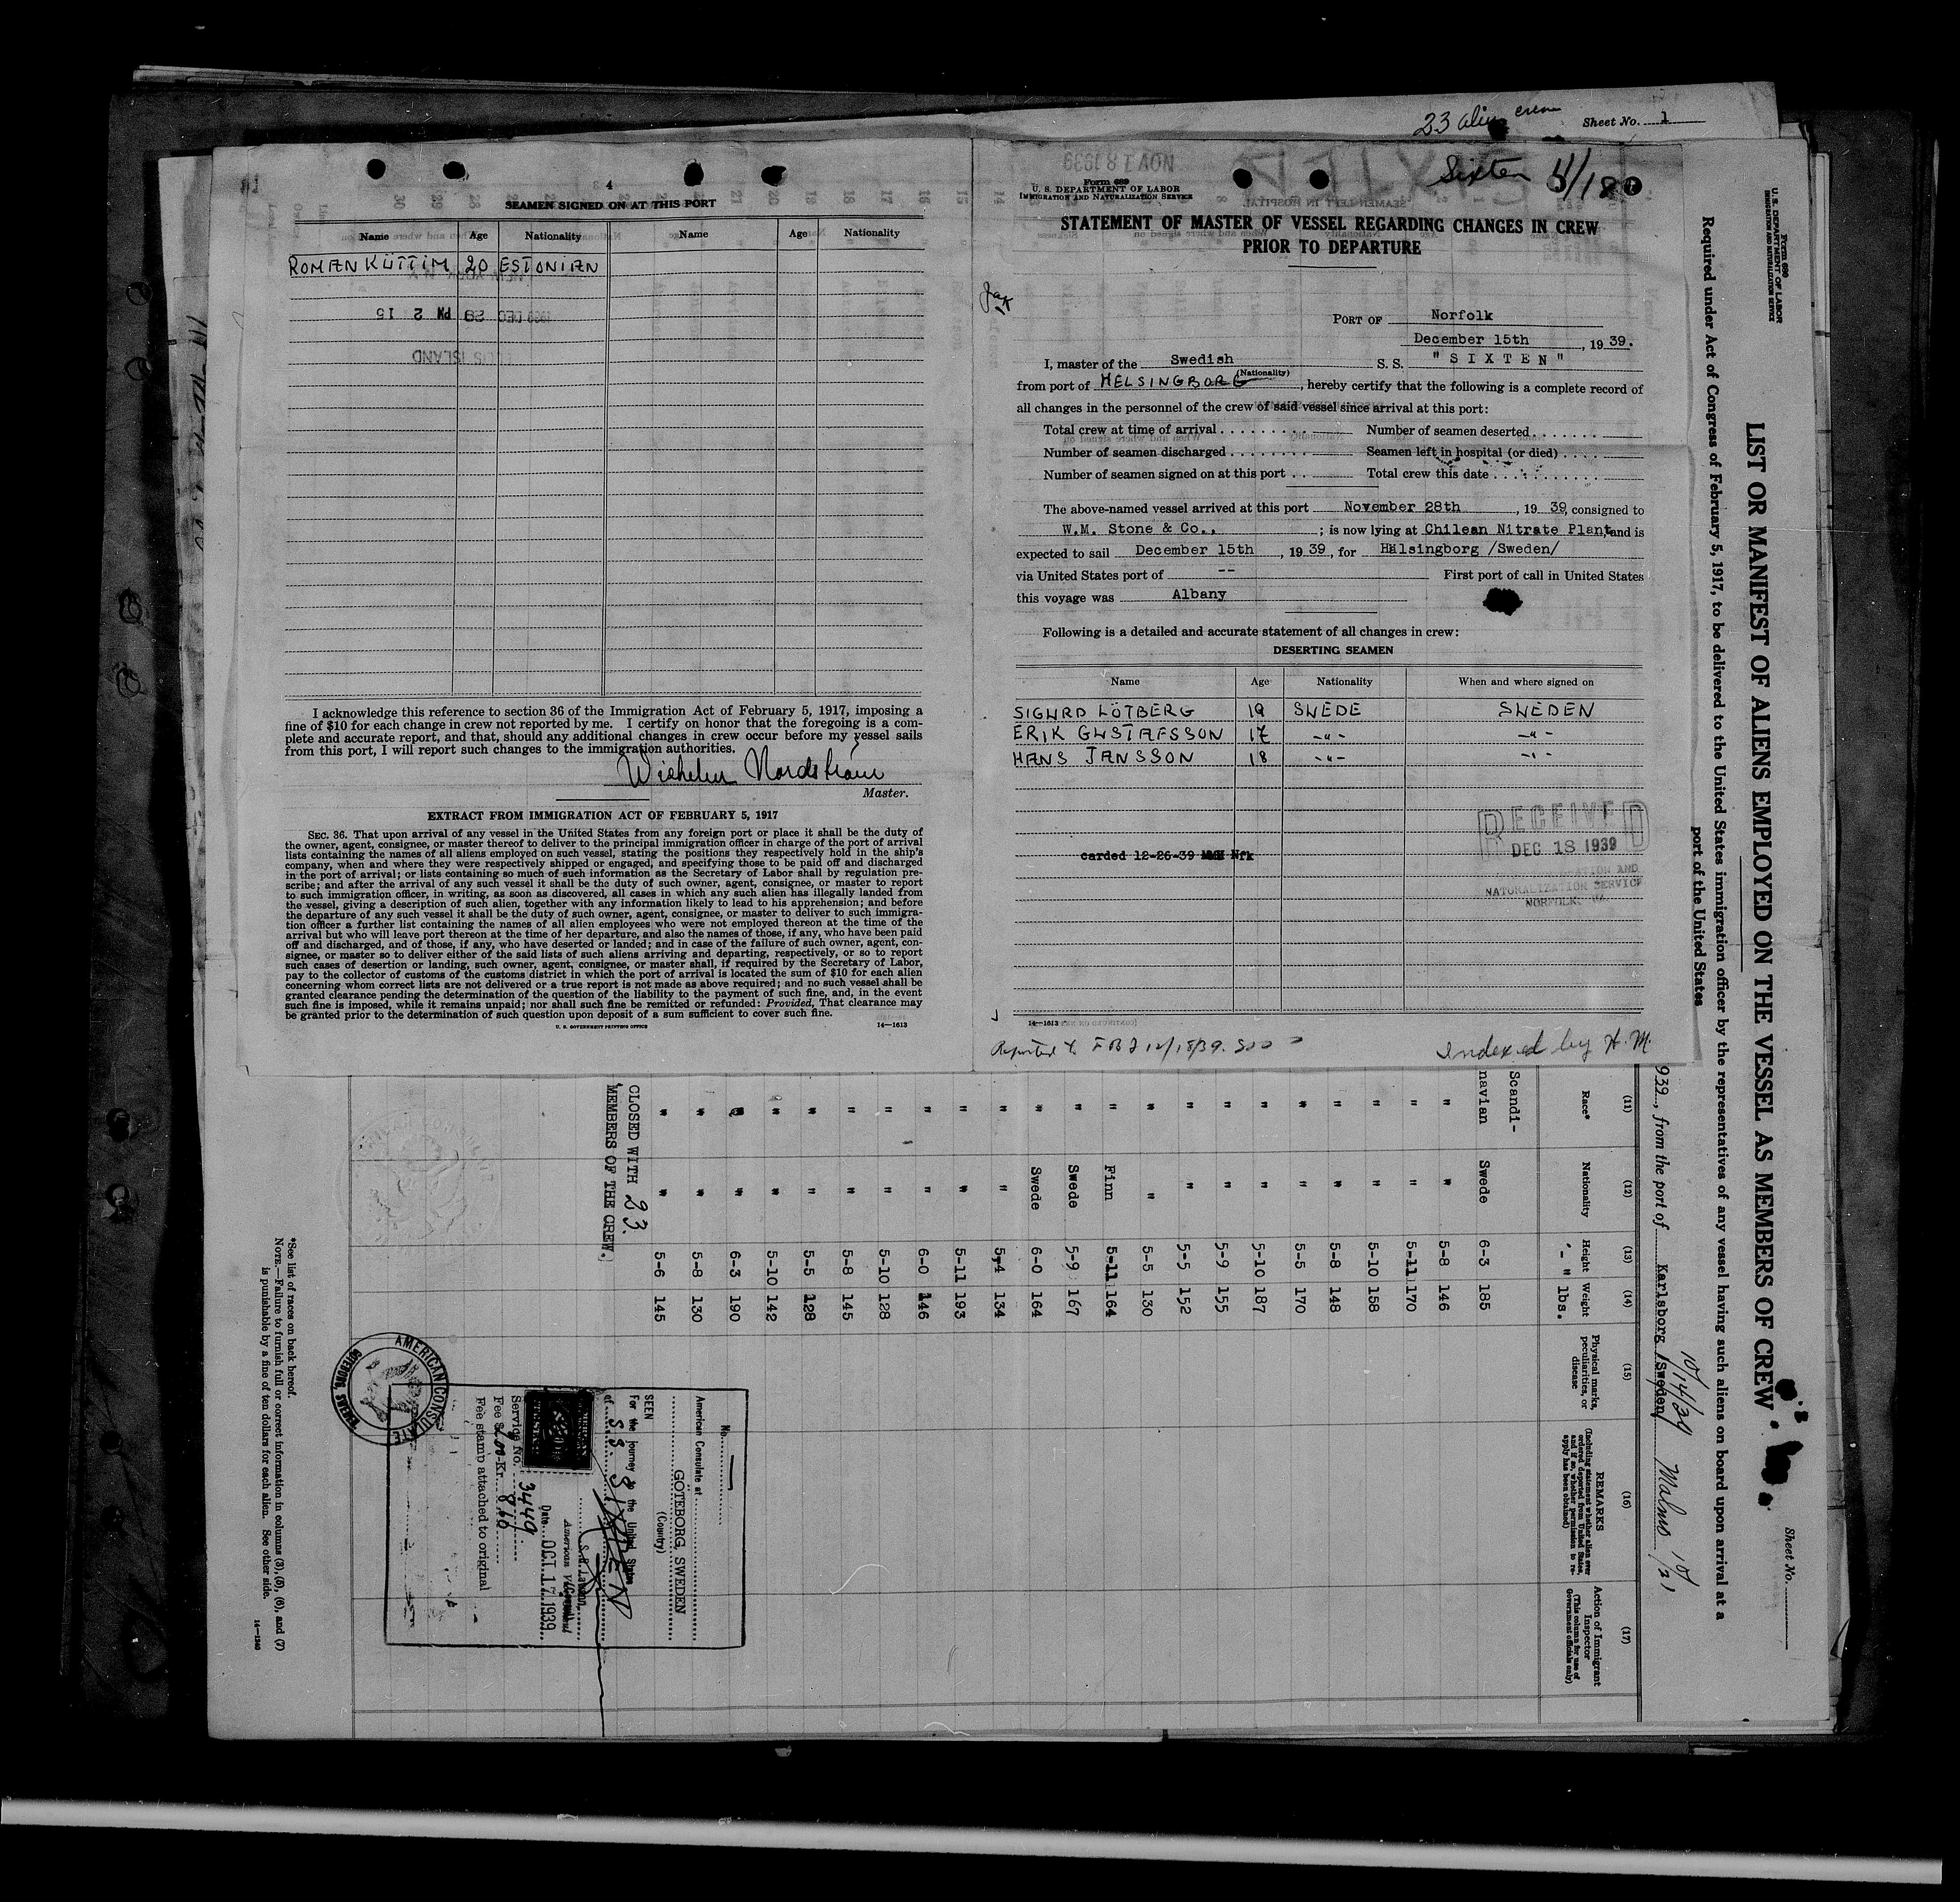 23 alien crew
Sheet No. 1
4
SEAMEN SIGNED ON AT THIS PORT
Name Age Nationality Name Age Nationality
ROMAN KÜTTIM 20 ESTONIAN
1939 DEC 29 PM 2 15
ELLIS ISLAND
I acknowledge this reference to section 36 of the Immigration Act of February 5, 1917, imposing a
fine of $10 for each change in crew not reported by me. I certify on honor that the foregoing is a com-
plete and accurate report, and that, should any additional changes in crew occur before my vessel sails
from this port, I will report such changes to the immigration authorities.
Wilhelm Nordström
Master.
EXTRACT FROM IMMIGRATION ACT OF FEBRUARY 5, 1917
SEC. 36. That upon arrival of any vessel in the United States from any foreign port or place it shall be the duty of
the owner, agent, consignee, or master thereof to deliver to the principal immigration officer in charge of the port of arrival
lists containing the names of all aliens employed on such vessel, stating the positions they respectively hold in the ship's
company, when and where they were respectively shipped or engaged, and specifying those to be paid off and discharged
in the port of arrival; or lists containing so much of such information as the Secretary of Labor shall by regulation pre-
scribe; and after the arrival of any such vessel it shall be the duty of such owner, agent, consignee, or master to report
to such immigration officer, in writing, as soon as discovered, all cases in which any such alien has illegally landed from
the vessel, giving a description of such alien, together with any information likely to lead to his apprehension; and before
the departure of any such vessel it shall be the duty of such owner, agent, consignee, or master to deliver to such immigra-
tion officer a further list containing the names of all alien employees who were not employed thereon at the time of the
arrival but who will leave port thereon at the time of her departure, and also the names of those, if any, who have been paid
off and discharged, and of those, if any, who have deserted or landed; and in case of the failure of such owner, agent, con-
signee, or master so to deliver either of the said lists of such aliens arriving and departing, respectively, or so to report
such cases of desertion or landing, such owner, agent, consignee, or master shall, if required by the Secretary of Labor,
pay to the collector of customs of the customs district in which the port of arrival is located the sum of $10 for each alien
concerning whom correct lists are not delivered or a true report is not made as above required; and no such vessel shall be
granted clearance pending the determination of the question of the liability to the payment of such fine, and, in the event
such fine is imposed, while it remains unpaid; nor shall such fine be remitted or refunded: Provided, That clearance may
be granted prior to the determination of such question upon deposit of a sum sufficient to cover such fine.
U. S. GOVERNMENT PRINTING OFFICE 14—1613
NOV 18 1939
Sixten 11/18
Form 689
U. S. DEPARTMENT OF LABOR
IMMIGRATION AND NATURALIZATION SERVICE
STATEMENT OF MASTER OF VESSEL REGARDING CHANGES IN CREW
PRIOR TO DEPARTURE
PORT OF Norfolk
December 15th, 19 39.
I, master of the Swedish S. S. "SIXTEN"
(Nationality)
from port of HELSINGBORG, hereby certify that the following is a complete record of
all changes in the personnel of the crew of said vessel since arrival at this port:
Total crew at time of arrival Number of seamen deserted
Number of seamen discharged Seamen left in hospital (or died)
Number of seamen signed on at this port Total crew this date
The above-named vessel arrived at this port November 28th, 19 39, consigned to
W.M. Stone & Co., ; is now lying at Chilean Nitrate Plant, and is
expected to sail December 15th, 19 39, for Hälsingborg /Sweden/
via United States port of -- First port of call in United States
this voyage was Albany
Following is a detailed and accurate statement of all changes in crew:
DESERTING SEAMEN
Name Age Nationality When and where signed on
SIGURD LÖTBERG 19 SWEDE SWEDEN
ERIK GUSTAFSSON 17 -"- -"-
HANS JANSSON 18 -"- -"-
RECEIVED
DEC 18 1939
carded 12-26-39 Nfk
NATURALIZATION SERVICE
NORFOLK, VA.
14—1613
Reported to 12/18/39.
Indexed by H. M.
Form 680
U. S. DEPARTMENT OF LABOR
IMMIGRATION AND NATURALIZATION SERVICE
Sheet No.
LIST OR MANIFEST OF ALIENS EMPLOYED ON THE VESSEL AS MEMBERS OF CREW
Required under Act of Congress of February 5, 1917, to be delivered to the United States immigration officer by the representatives of any vessel having such aliens on board upon arrival at a
port of the United States
939, from the port of Karlsborg /Sweden/ 10/14/39 Malmo 10/21
(11) (12) (13) (14) (15) (16) (17)
Race* Nationality Height Weight Physical marks, peculiarities, or disease REMARKS (Including statement whether alien ever ordered deported from United States, and if so, whether permission to reapply has been obtained) Action of Immigrant Inspector (This column for use of Government officials only)
' - " lbs.
Scandi-
navian Swede 6-3 185
" " 5-8 146
" " 5-11 170
" " 5-10 158
" " 5-8 148
" " 5-5 170
" " 5-10 187
" " 5-9 155
" " 5-5 152
" " 5-5 130
" Finn 5-11 164
" Swede 5-9 167
" Swede 6-0 164
" " 5-4 134
" " 5-11 193
" " 6-0 146
" " 5-10 128
" " 5-8 145
" " 5-5 128
" " 5-10 142
" " 6-3 190
" " 5-8 130
" " 5-6 145
CLOSED WITH 23.
MEMBERS OF THE CREW.
No.
American Consulate at
GÖTEBORG, SWEDEN
(Country)
SEEN
For the journey to the United States
of S.S. SIXTEN
American Vice Consul
Date OCT 17 1939
Service No. 3449
Fee $2.00-Kr. 8.40
Fee stamp attached to original
AMERICAN CONSULATE
*See list of races on back hereof.
NOTE.—Failure to furnish full or correct information in columns (3), (5), (6), and (7)
is punishable by a fine of ten dollars for each alien. See other side.
14—1240